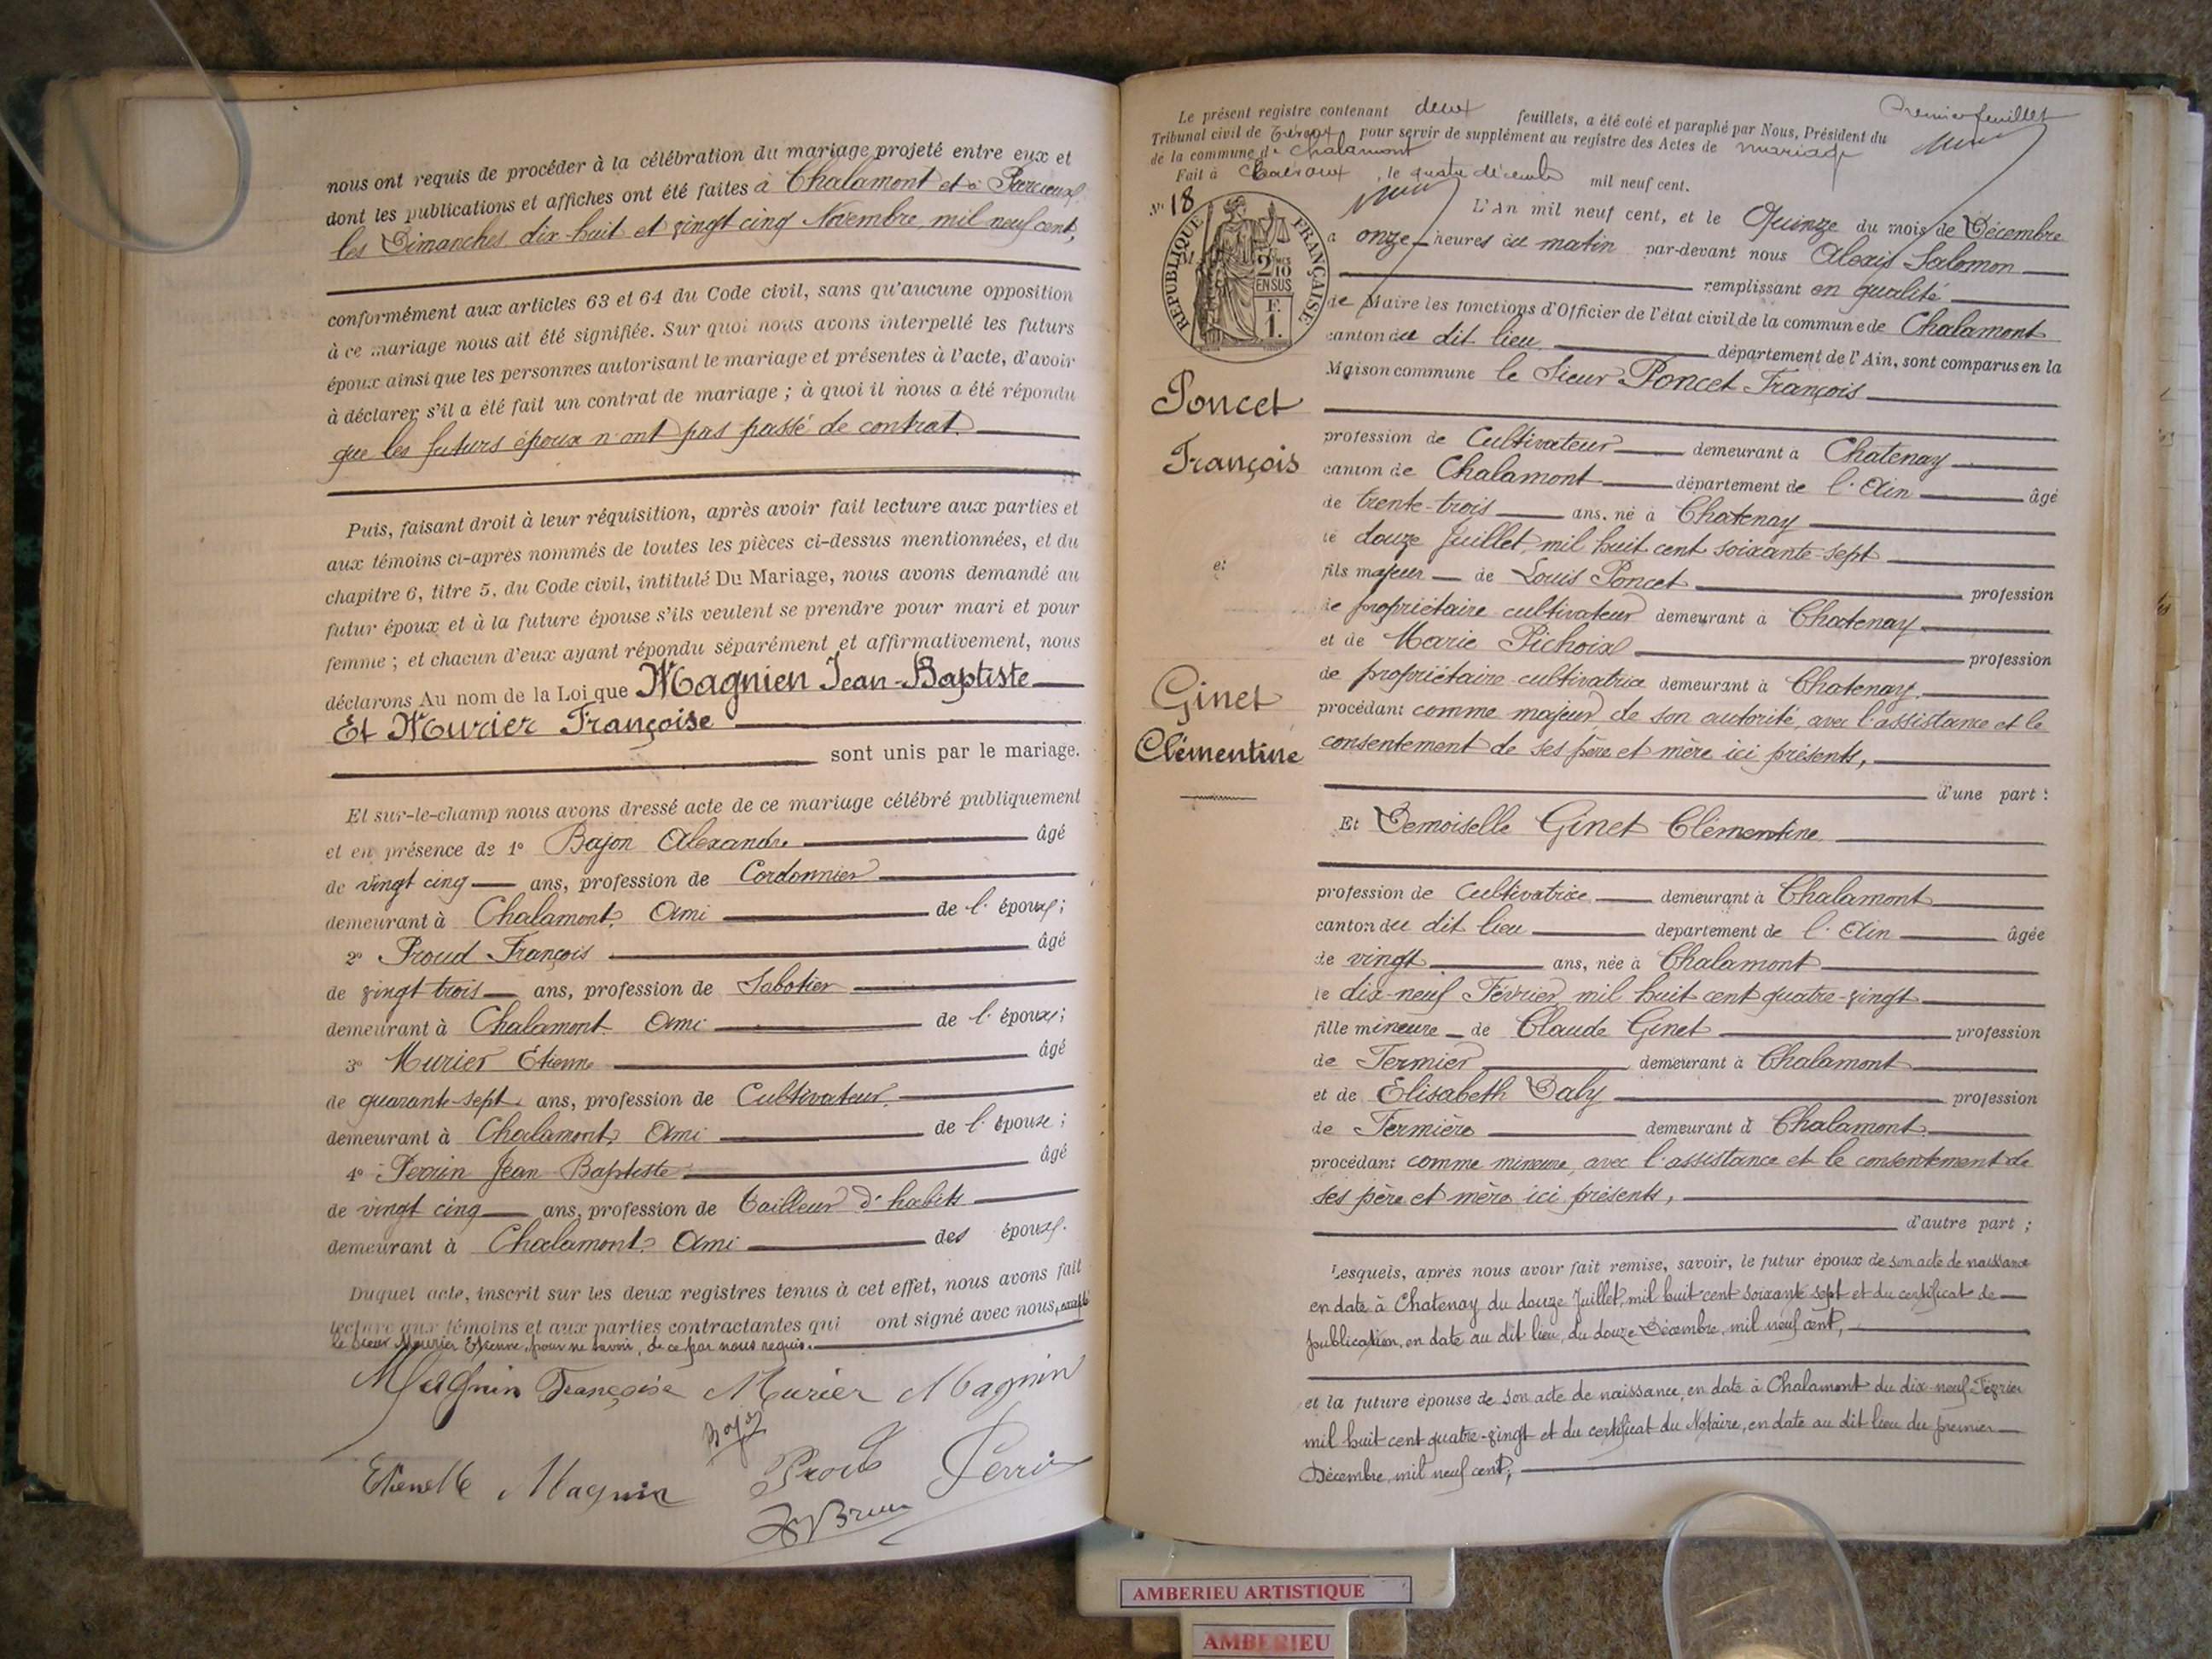 nous ont requis de procéder à la célébration du mariage projeté entre eux et
dont les publications et affiches ont été faites à Chalamont et à Parcieux
les Dimanches dix-huit et vingt cinq Novembre, mil neuf cent,
conformément aux articles 63 et 64 du Code civil, sans qu'aucune opposition
à ce mariage nous ait été signifiée. Sur quoi nous avons interpellé les futurs
époux ainsi que les personnes autorisant le mariage et présentes à l'acte, d'avoir
à déclarer s'il a été fait un contrat de mariage ; à quoi il nous a été répondu
que les futurs époux n'ont pas passé de contrat.
Puis, faisant droit à leur réquisition, après avoir fait lecture aux parties et
aux témoins ci-après nommés de toutes les pièces ci-dessus mentionnées, et du
chapitre 6, titre 5, du Code civil, intitulé Du Mariage, nous avons demandé au
futur époux et à la future épouse s'ils veulent se prendre pour mari et pour
femme ; et chacun d'eux ayant répondu séparément et affirmativement, nous
déclarons Au nom de la Loi que Magnien Jean-Baptiste
Et Murier Françoise
sont unis par le mariage.
Et sur-le-champ nous avons dressé acte de ce mariage célébré publiquement
et en présence de 1° Bajon Alexandre âgé
de vingt cinq ans, profession de Cordonnier
demeurant à Chalamont, Ami de l'époux ;
2° Proud François âgé
de vingt trois ans, profession de Sabotier
demeurant à Chalamont Ami de l'époux ;
3° Murier Etienne âgé
de quarante-sept ans, profession de Cultivateur
demeurant à Chalamont, Ami de l'épouse ;
4° Perrin Jean Baptiste âgé
de vingt cinq ans, profession de Tailleur d'habits
demeurant à Chalamont, Ami des époux.
Duquel acte, inscrit sur les deux registres tenus à cet effet, nous avons fait
lecture aux témoins et aux parties contractantes qui ont signé avec nous, excepté
le sieur Murier Etienne, pour ne savoir, de ce par nous requis.
Magnin Françoise Murier Magnin
Magnin Proud Perrin
Premier feuillet
Le présent registre contenant deux feuillets, a été coté et paraphé par Nous, Président du
Tribunal civil de Trévoux pour servir de supplément au registre des Actes de mariage
de la commune de Chalamont
Fait à Trévoux, le quatre décembre mil neuf cent.
N° 18
RÉPUBLIQUE FRANÇAISE
2/10
EN SUS
F.
1.
L'An mil neuf cent, et le Quinze du mois de Décembre
à onze heures du matin par-devant nous Alexis Salomon
remplissant en qualité
de Maire les fonctions d'Officier de l'état civil de la commune de Chalamont
canton du dit lieu département de l'Ain, sont comparus en la
Maison commune le Sieur Poncet François
Poncet
François
et
Ginet
Clémentine
profession de Cultivateur demeurant à Chatenay
canton de Chalamont département de l'Ain âgé
de trente-trois ans, né à Chatenay
le douze Juillet, mil huit cent soixante-sept
fils majeur de Louis Poncet profession
de propriétaire cultivateur demeurant à Chatenay
et de Marie Pichoix profession
de propriétaire-cultivatrice demeurant à Chatenay
procédant comme majeur de son autorité, avec l'assistance et le
consentement de ses père et mère ici présents,
d'une part :
Et Demoiselle Ginet Clémentine
profession de Cultivatrice demeurant à Chalamont
canton du dit lieu département de l'Ain âgée
de vingt ans, née à Chalamont
le dix-neuf Février mil huit cent quatre-vingt
fille mineure de Claude Ginet profession
de Fermier demeurant à Chalamont
et de Elisabeth Daly profession
de Fermière demeurant à Chalamont
procédant comme mineure, avec l'assistance et le consentement de
ses père et mère ici présents,
d'autre part ;
Lesquels, après nous avoir fait remise, savoir, le futur époux de son acte de naissance
en date à Chatenay du douze Juillet, mil huit cent soixante sept et du certificat de
publication, en date au dit lieu, du douze Décembre, mil neuf cent,
et la future épouse de son acte de naissance, en date à Chalamont du dix-neuf Février
mil huit cent quatre-vingt et du certificat du Notaire, en date au dit lieu du premier
Décembre, mil neuf cent,
AMBERIEU ARTISTIQUE
AMBERIEU